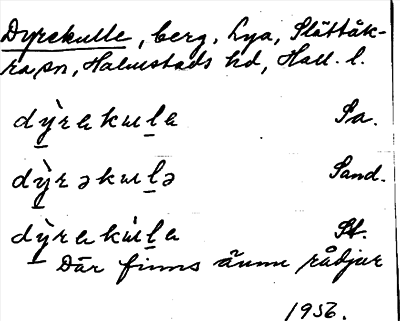 Dyrekulle, berg, Lya, Slättåk-
ra sn, Halmstads hd, Hall. l.
dỳ̠rakɯl̠a Sa.
dỳ̠rəkɯl̠ə Sand.
dỳ̠rakɯ̀l̠a St.
Där finns ännu rådjur
1956.